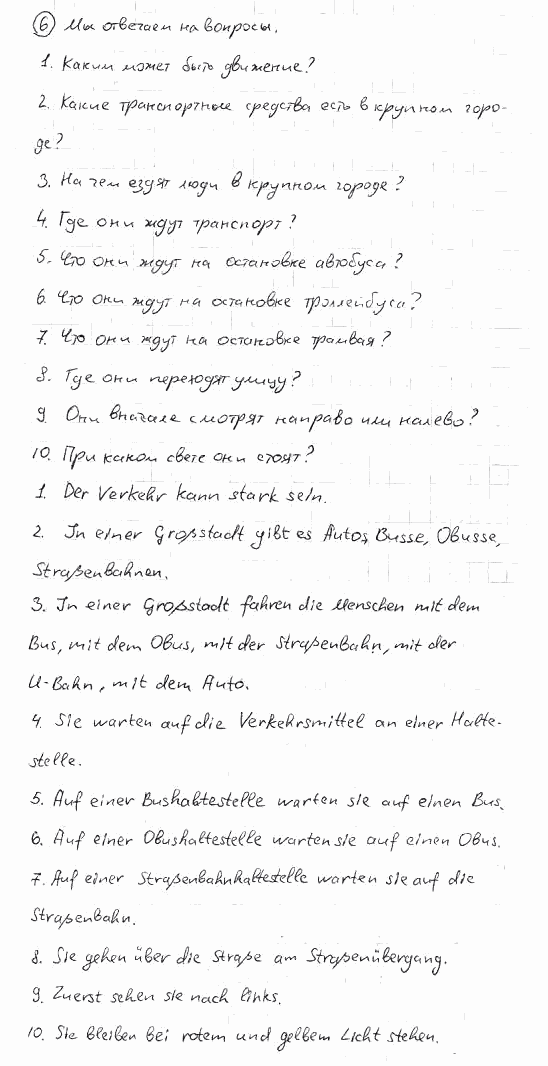 6 Мы отвечаем на вопросы.
1. Каким может быть движение?
2. Какие транспортные средства есть в крупном горо-
де?
3. На чем ездят люди в крупном городе?
4. Где они ждут транспорт?
5. Что они ждут на остановке автобуса?
6. Что они ждут на остановке троллейбуса?
7. Что они ждут на остановке трамвая?
8. Где они переходят улицу?
9. Они вначале смотрят направо или налево?
10. При каком свете они стоят?
1. Der Verkehr kann stark sein.
2. In einer Großstadt gibt es Autos, Busse, Obusse,
Straßenbahnen.
3. In einer Großstadt fahren die Menschen mit dem
Bus, mit dem Obus, mit der Straßenbahn, mit der
U-Bahn, mit dem Auto.
4. Sie warten auf die Verkehrsmittel an einer Halte-
stelle.
5. Auf einer Bushaltestelle warten sie auf einen Bus.
6. Auf einer Obushaltestelle warten sie auf einen Obus.
7. Auf einer Straßenbahnhaltestelle warten sie auf die
Straßenbahn.
8. Sie gehen über die Straße am Straßenübergang.
9. Zuerst sehen sie nach links.
10. Sie bleiben bei rotem und gelbem Licht stehen.